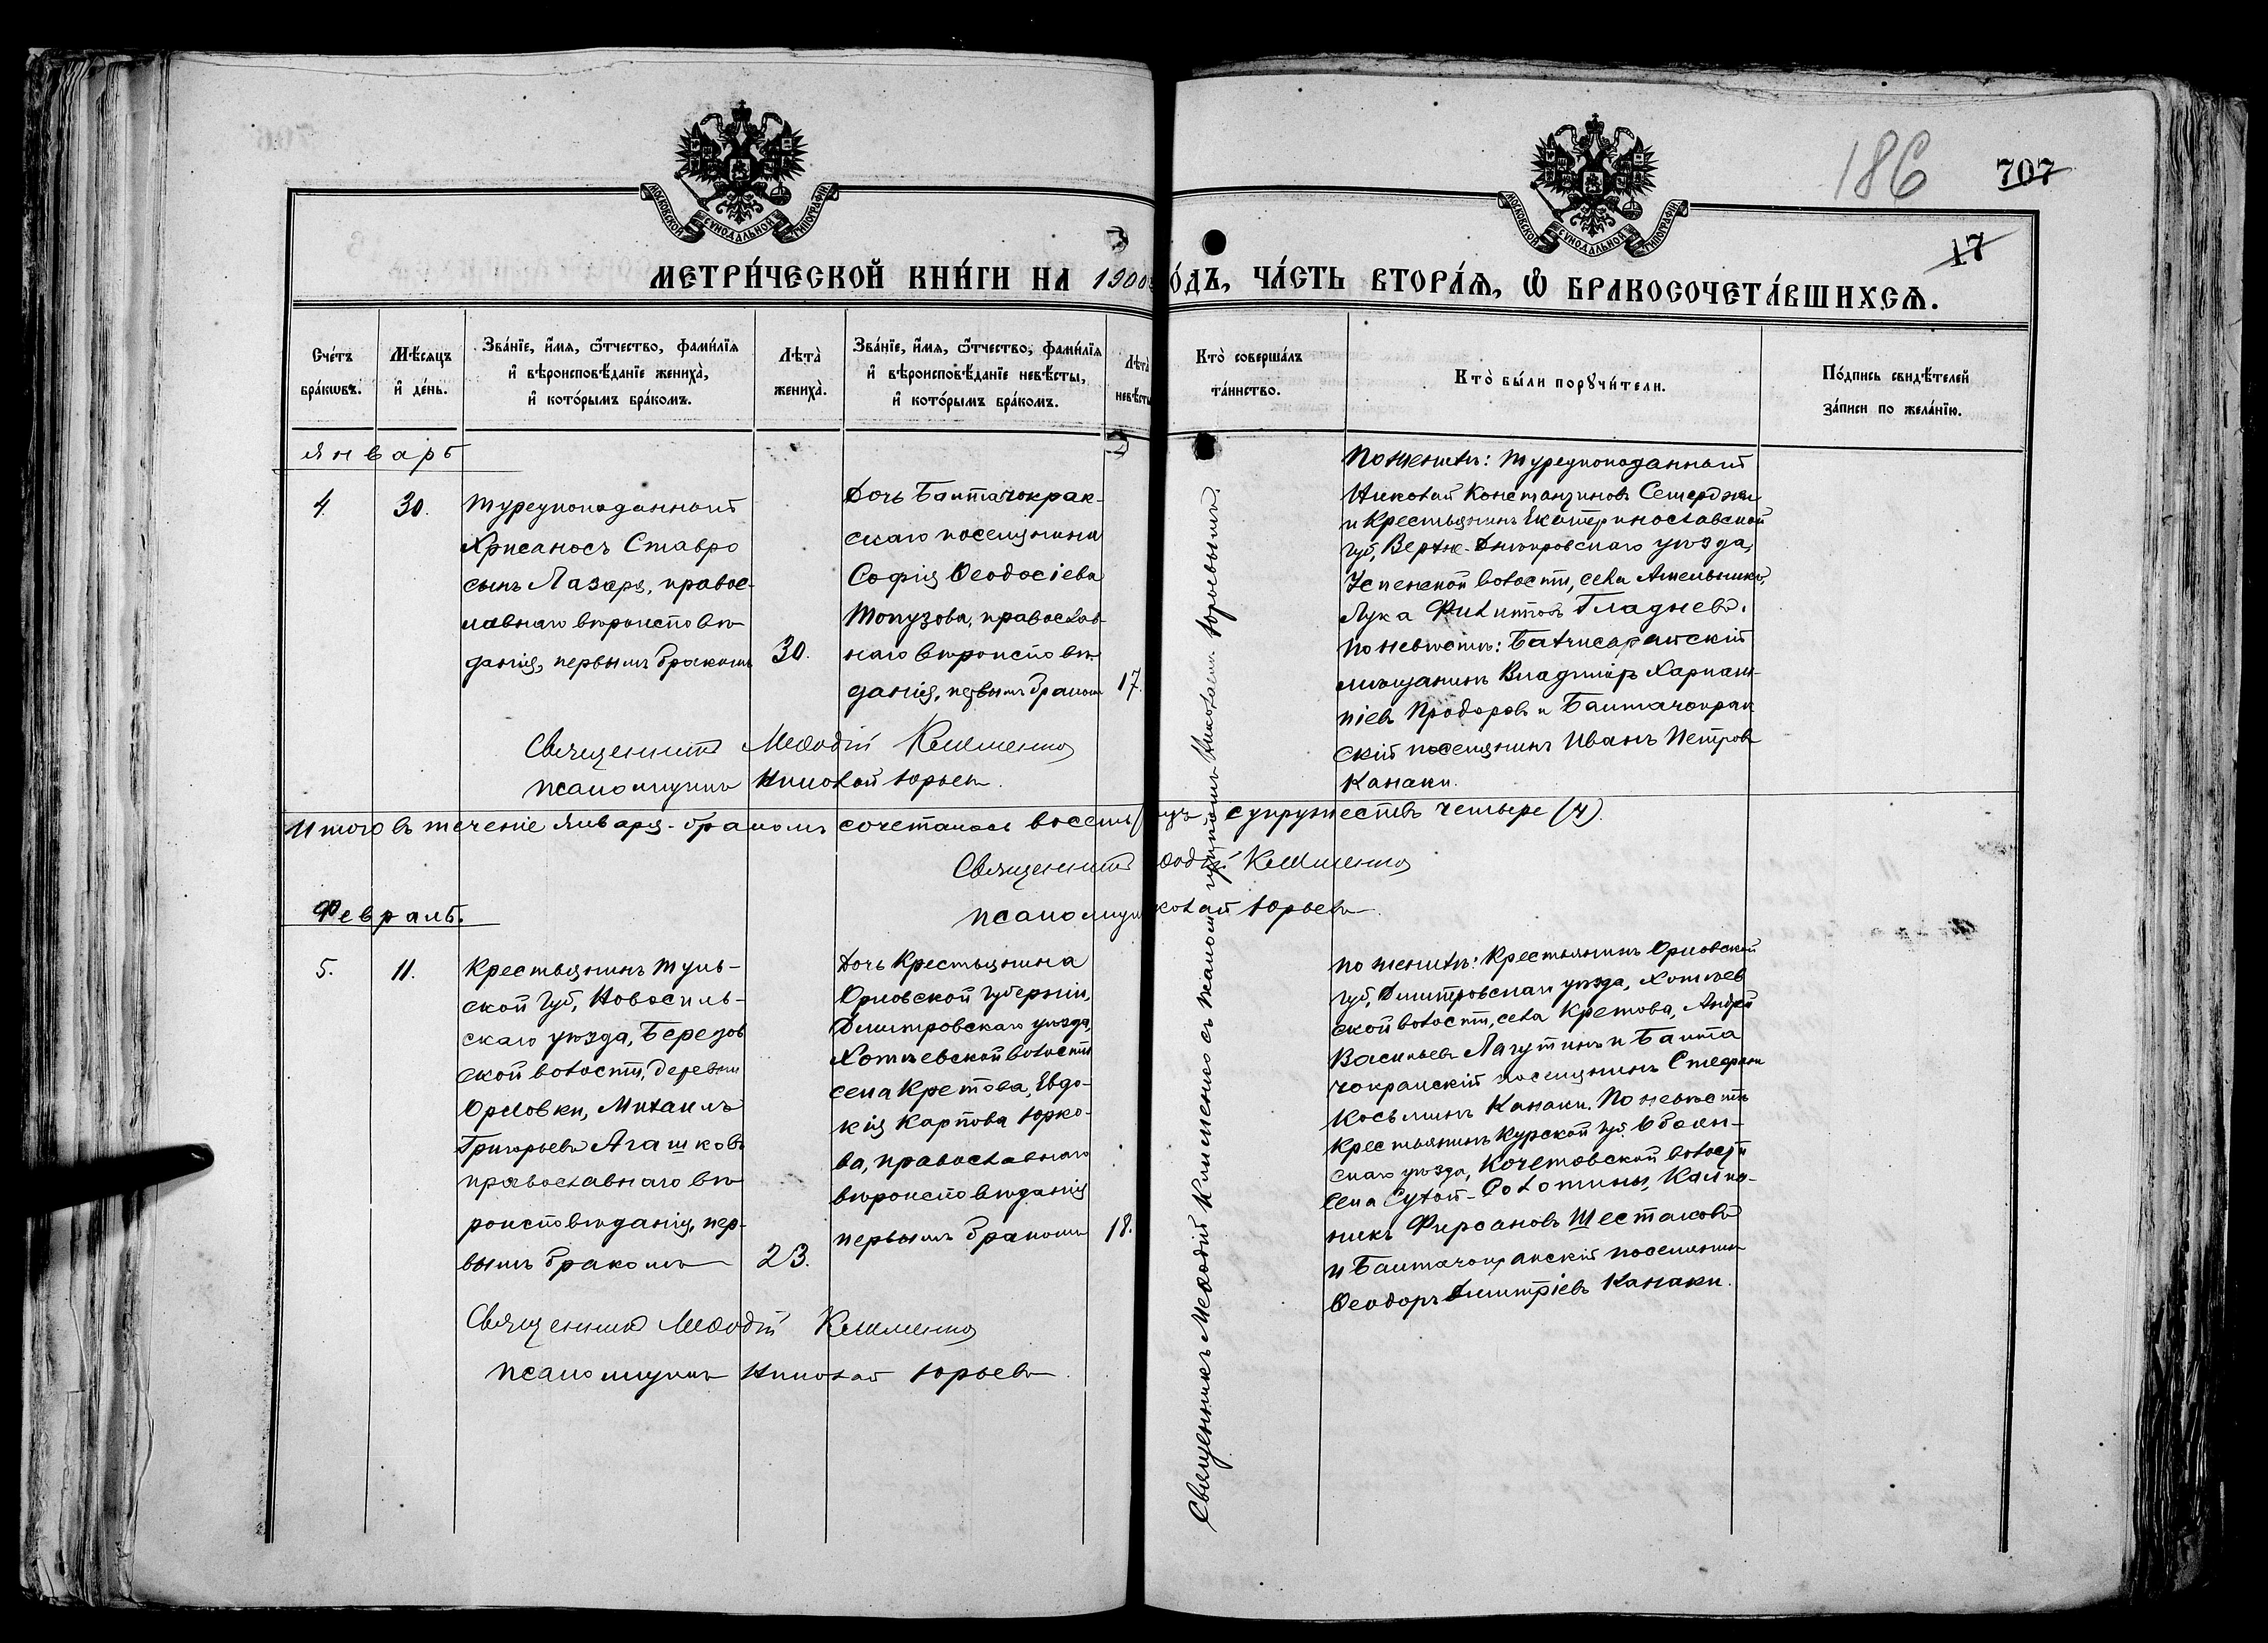 186
707
17
МОСКОВСКОЙ СѴНОДАЛЬНОЙ ТИПОГРАФІИ
МОСКОВСКОЙ СѴНОДАЛЬНОЙ ТИПОГРАФІИ
МЕТРИ́ЧЕСКОЙ КНИ́ГИ НА 1900 ГО́ДЪ, ЧА́СТЬ ВТОРА́Я, Ѡ БРАКОСОЧЕТА́ВШИХСѦ.
Сче́тъ
бра́кѡвъ.
Мѣ́сяцъ
и҆ де́нь.
Зва́нїе, и҆́мя, ѻ҆́тчество, фами́лїя
и҆ вѣроисповѣ́данїе жениха̀,
и҆ кото́рымъ бра́комъ.
Лѣта̀
жениха̀.
Зва́нїе, и҆́мя, ѻ҆́тчество, фами́лїя
и҆ вѣроисповѣ́данїе невѣ́сты,
и҆ кото́рымъ бра́комъ.
Лѣта̀
невѣ́сты
Кто̀ соверша́лъ
та́инство.
Кто̀ бы́ли порꙋчи́тели.
По́дпись свидѣ́телей
за́писи по жела́нїю.
Январь
4.
30.
Турецкоподанный
Хрисаносъ Ставро
сынъ Лазаря, правос-
лавнаго вѣроисповѣ-
данія, первымъ бракомъ
30.
Дочь Баптачокрак-
скаго поселянина
Софія Ѳеодосіева
Топузова, православ-
наго вѣроисповѣ-
данія, первымъ бракомъ
17.
По женихѣ: турецкоподанный
Николай Константиновъ Семерджи
и Крестьянинъ Екатеринославской
губ, Верхне-Днѣпровскаго уѣзда,
Успенской волости, села
Лука Филиповъ Гладневъ.
По невѣстѣ: Бахчисарайскій
мѣщанинъ Владиміръ Харлам-
піевъ Продоровъ и Баптачокрак
скій поселянинъ Иванъ Петровъ
Канаки.
Священникъ Меѳодій Клименко
псаломщикъ Николай Юрьевъ.
Итого въ теченіе Января - бракомъ сочеталось восемь супружествъ четыре (4).
Священникъ Меѳодій Клименко
псаломщикъ Николай Юрьевъ.
Февраль.
5.
11.
Крестьянинъ Туль-
ской губ, Новосиль-
скаго уѣзда, Березов
ской волости, деревни
Орловки, Михаилъ
Григорьевъ Агашковъ
православнаго вѣ-
роисповѣданія, пер-
вымъ бракомъ
23.
Дочь Крестьянина
Орловской губерніи,
Дмитровскаго уѣзда,
Хотѣевской волости
села Кретова, Евдо-
кія Карпова Юрко-
ва, православнаго
вѣроисповѣданія
первымъ бракомъ
18.
По женихѣ: Крестьянинъ Орловской
губ, Дмитровскаго уѣзда, Хотѣев
ской волости, села Кретова, Андрей
Васильевъ Лагутинъ и Бапта
чокракскій поселянинъ Стефанъ
Косьминъ Канаки. По невѣстѣ
Крестьянинъ Курской губ. Обоян-
скаго уѣзда, Кочетовской волости
села Сухой-Солотины, Калин-
никъ Фирсановъ Шестаковъ
и Баптачокракскій поселянинъ
Ѳеодоръ Дмитріевъ Канаки.
Священникъ Меѳодій Клименко
псаломщикъ Николай Юрьевъ.
Священникъ Меѳодій Клименко съ псаломщикомъ Николаемъ Юрьевымъ.